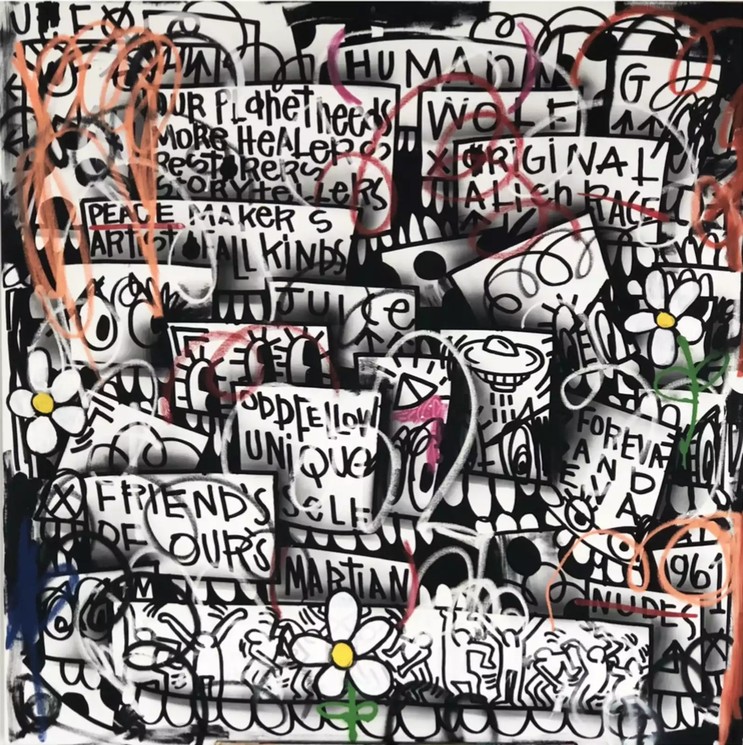 HUMAN
G
OUR PlaNet Needs
MORE HEALERS
RESTORERS
STORYteLLERS
WOLF
XORiGiNAL
ALiEn RACE
PEACE MAKERS
ARTIST OF ALL KiNDS
JUICe
ODDFELLOW
UNiQUE
SELF
FOREVA
AND
EVA
FRIEND'S
OF OURS
MARTIAN
1961
NUDES
M